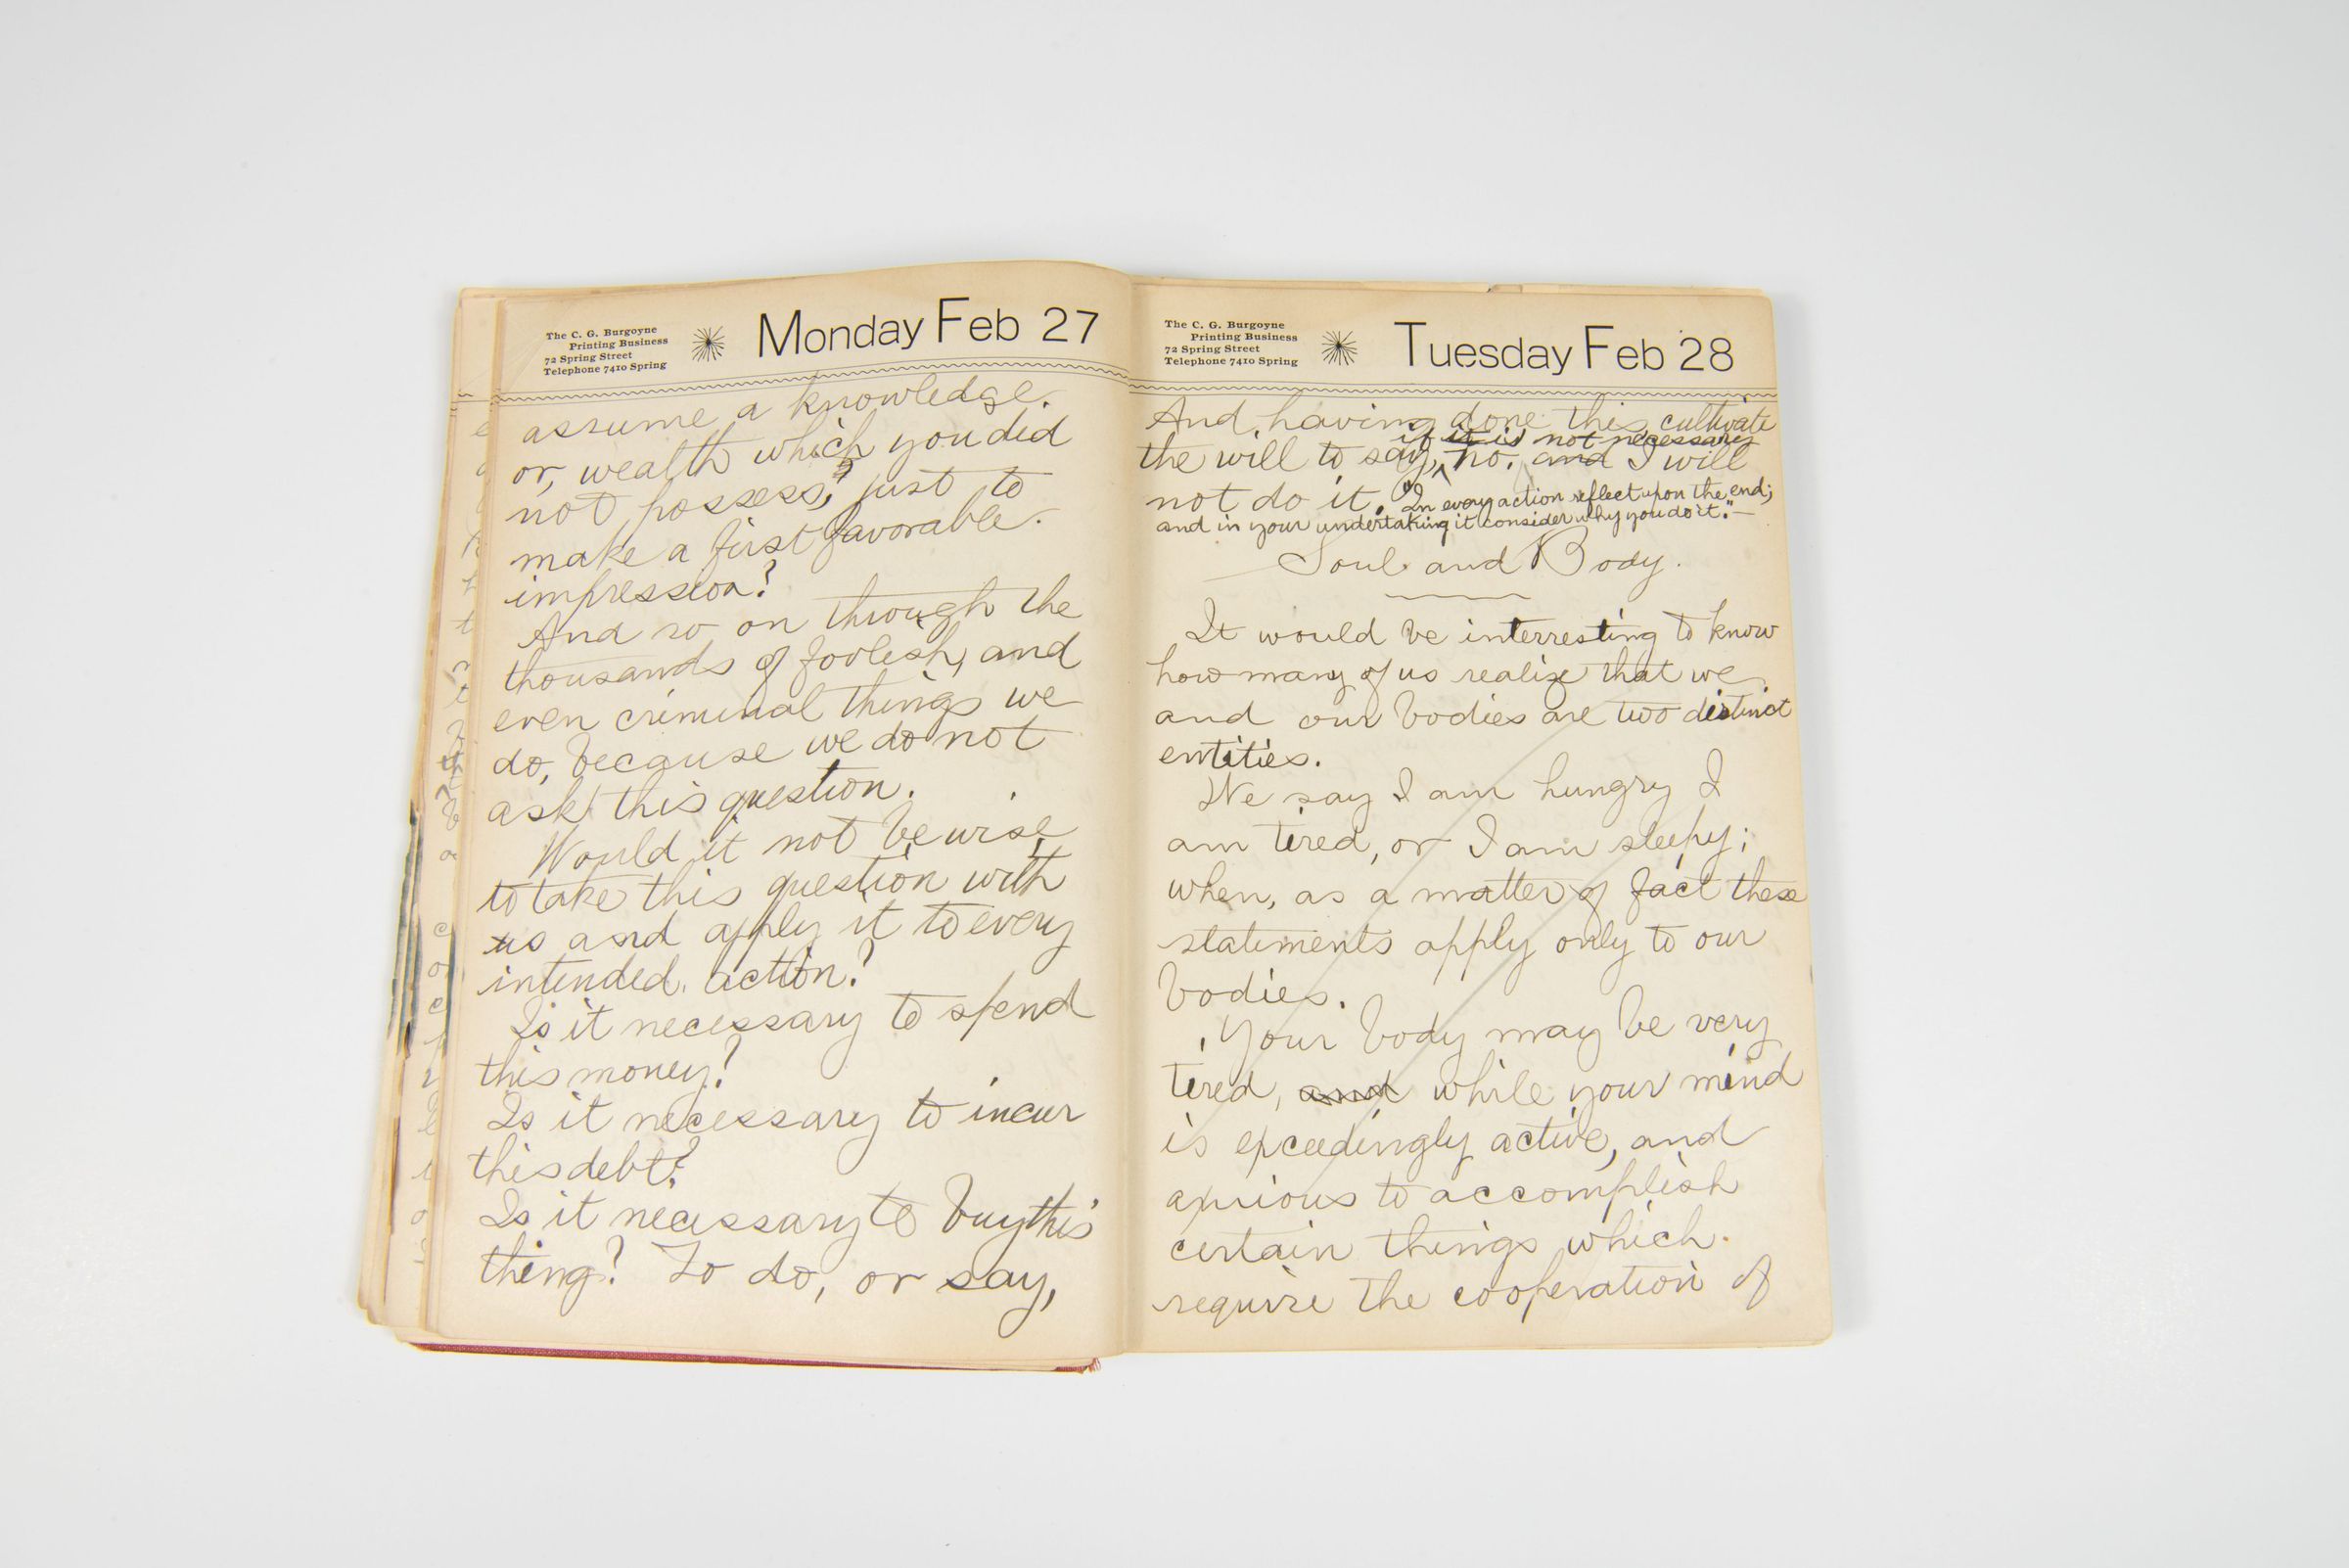 The C. G. Burgoyne
Printing Business
72 Spring Street
Telephone 7410 Spring
Monday Feb 27
assume a knowledge
or, wealth which you did
not possess, just to
make a first favorable
impression?
And so on through the
thousands of foolish, and
even criminal things we
do, because we do not
ask this question.
Would it not be wise,
to take this question with
us and apply it to every
intended action?
Is it necessary to spend
this money?
Is it necessary to incur
this debt?
Is it necessary to buy this
thing? To do, or say,
The C. G. Burgoyne
Printing Business
72 Spring Street
Telephone 7410 Spring
Tuesday Feb 28
And, having done this, cultivate
if it is not necessary
the will to say, no. and I will
not do it. "In every action reflect upon the end;
and in your undertaking it consider why you do it."—
Soul and Body.
It would be interresting to know
how many of us realize that we
and our bodies are two distinct
entities.
We say I am hungry I
am tired, or I am sleepy;
when, as a matter of fact these
statements apply only to our
bodies.
Your body may be very
tired, and while your mind
is exceedingly active, and
anxious to accomplish
certain things which
require the cooperation of